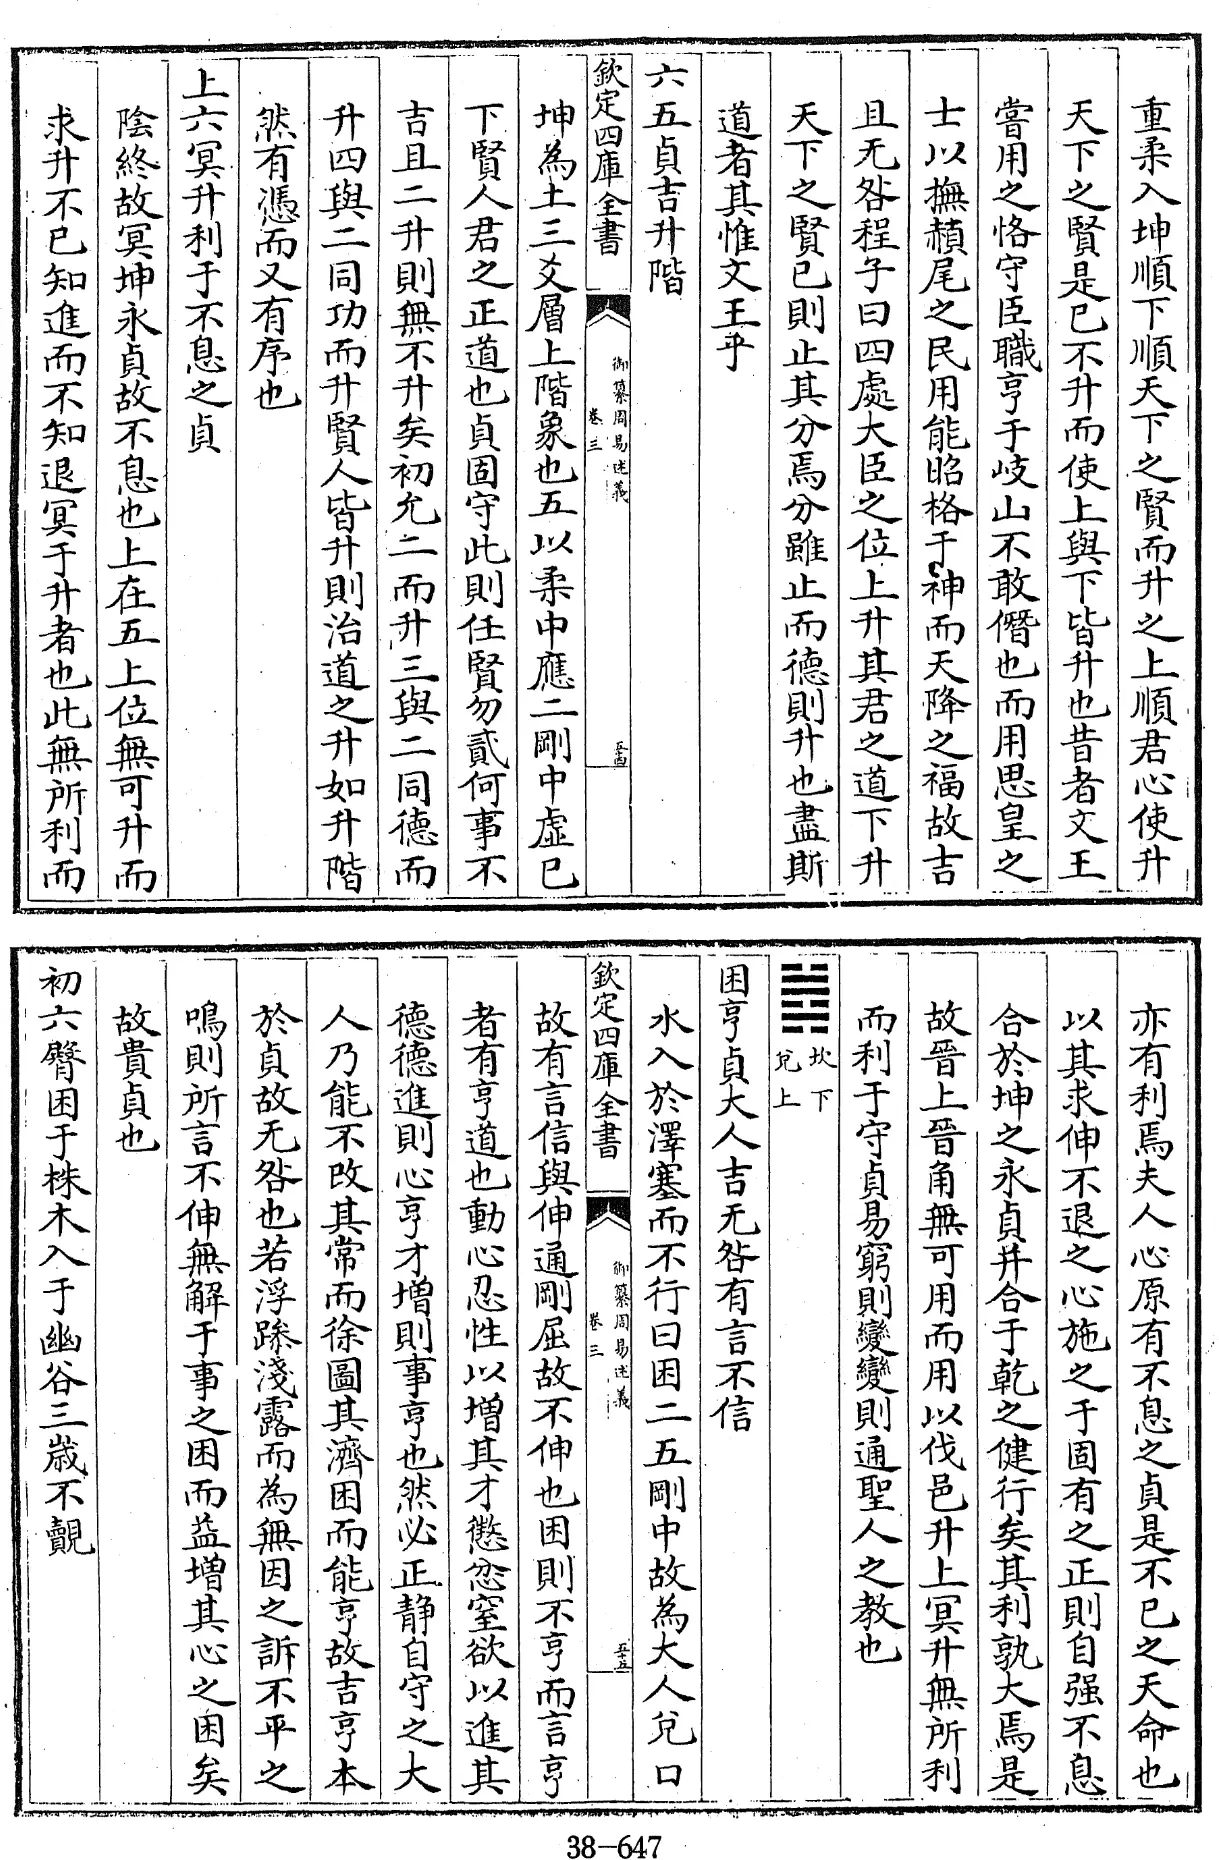 重柔入坤順下順天下之賢而升之上順君心使升
天下之賢是已不升而使上與下皆升也昔者文王
嘗用之恪守臣職亨于岐山不敢僭也而用思皇之
士以撫赬尾之民用能昭格于神而天降之福故吉
且无咎程子曰四處大臣之位上升其君之道下升
天下之賢已則止其分焉分雖止而德則升也盡斯
道者其惟文王乎
六五貞吉升階
欽定四庫全書
御纂周易述義
卷三
五十四
坤為土三爻層上階象也五以柔中應二剛中虛已
下賢人君之正道也貞固守此則任賢勿貳何事不
吉且二升則無不升矣初允二而升三與二同德而
升四與二同功而升賢人皆升則治道之升如升階
然有憑而又有序也
上六冥升利于不息之貞
陰終故冥坤永貞故不息也上在五上位無可升而
求升不已知進而不知退冥于升者也此無所利而
亦有利焉夫人心原有不息之貞是不已之天命也
以其求伸不退之心施之于固有之正則自强不息
合於坤之永貞并合于乾之健行矣其利孰大焉是
故晉上晉角無可用而用以伐邑升上冥升無所利
而利于守貞易窮則變變則通聖人之教也
坎下
兌上
困亨貞大人吉无咎有言不信
水入於澤塞而不行曰困二五剛中故為大人兌口
欽定四庫全書
御纂周易述義
卷三
五十五
故有言信與伸通剛屈故不伸也困則不亨而言亨
者有亨道也動心忍性以增其才懲忿窒欲以進其
德德進則心亨才增則事亨也然必正静自守之大
人乃能不改其常而徐圖其濟困而能亨故吉亨本
於貞故无咎也若浮躁淺露而為無因之訴不平之
鳴則所言不伸無解于事之困而益增其心之困矣
故貴貞也
初六臀困于株木入于幽谷三歲不覿
38-647